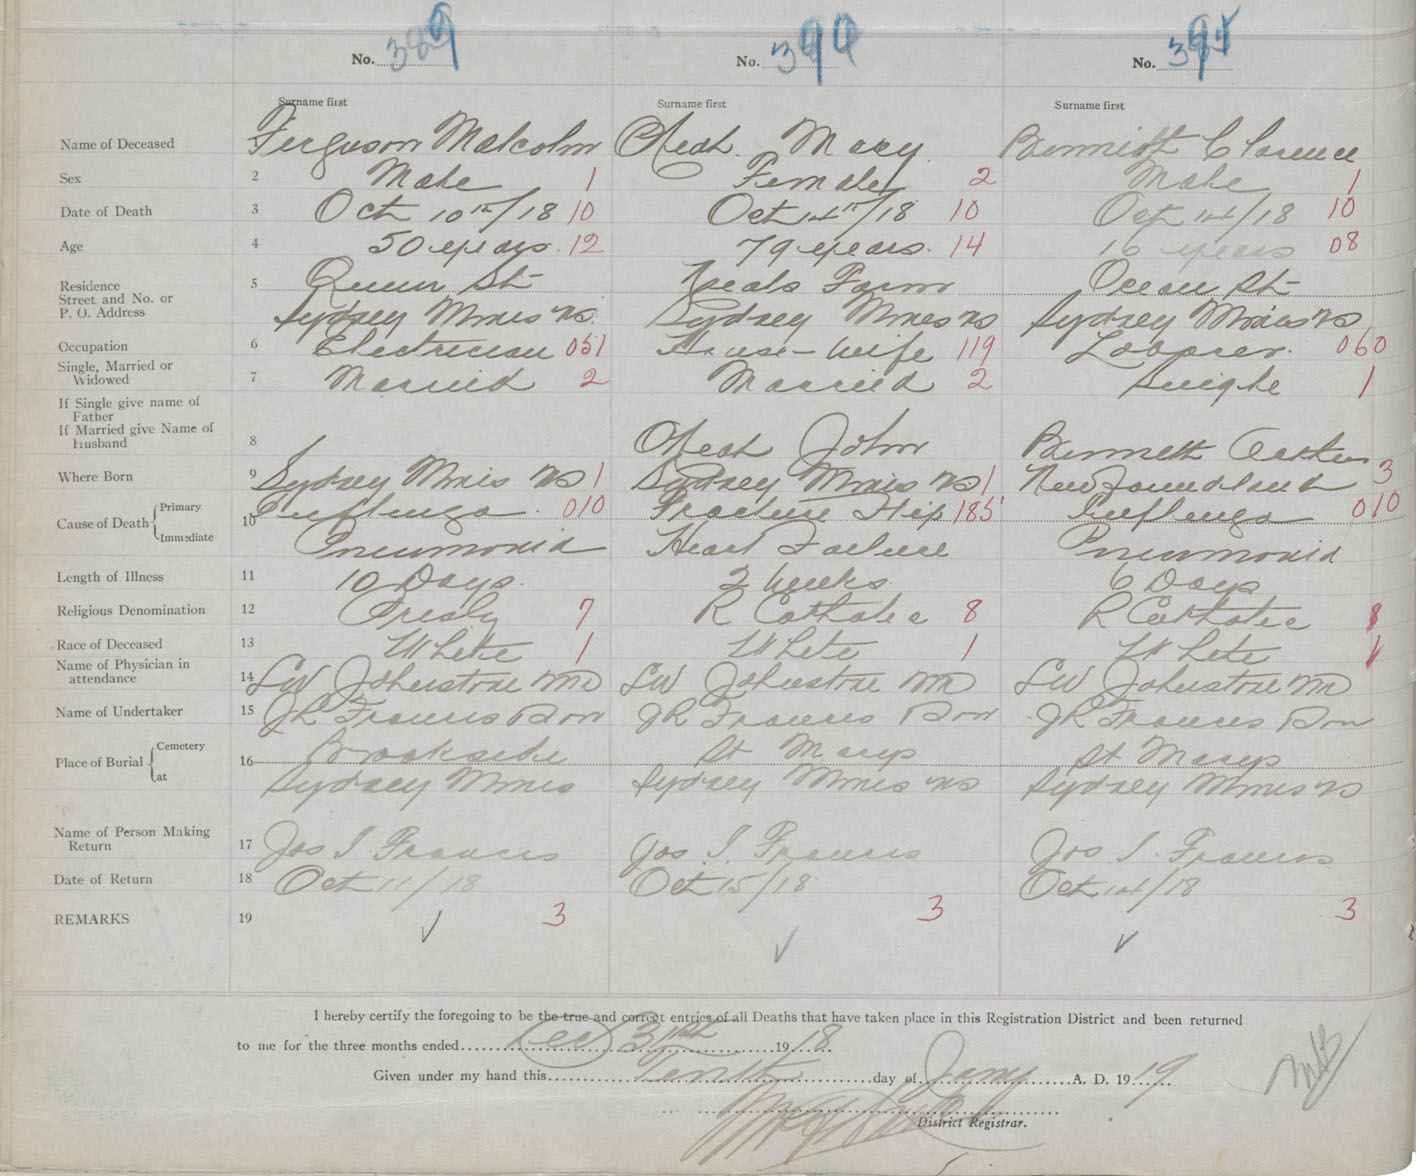 No. 389 No. 390 No. 391
Surname first Surname first Surname first
Name of Deceased Ferguson Malcolm Mary Bennett Clarence
Sex 2 Male 1 Female 2 Male 1
Date of Death 3 Oct 10th/18 10 Oct 14th/18 10 Oct 14/18 10
Age 4 50 years. 12 79 years. 14 16 years 08
Residence 5 Queen St Neals Farm Ocean St
Street and No. or
P. O. Address Sydney Mines NS. Sydney Mines NS Sydney Mines NS
Occupation 6 Electrician 051 House-wife 119 Laborer. 060
Single, Married or
Widowed 7 Married 2 Married 2 Single 1
If Single give name of
Father
If Married give Name of
Husband 8 John Bennett
Where Born 9 Sydney Mines NS 1 Sydney Mines NS 1 Newfoundland 3
Cause of Death Primary 10 Influenza. 010 Fracture Hip 185 Influenza 010
Immediate Pneumonia Heart Failure Pneumonia
Length of Illness 11 10 Days. 2 weeks. 6 Days
Religious Denomination 12 Presby 7 R Catholic 8 R Catholic 8
Race of Deceased 13 White 1 White 1 White 1
Name of Physician in
attendance 14 LW Johnstone MD LW Johnstone MD LW Johnstone MD
Name of Undertaker 15 JR Francis Son JR Francis Son JR Francis Son
Place of Burial Cemetery 16 Brookside St Marys St Marys
at Sydney Mines Sydney Mines NS Sydney Mines NS
Name of Person Making
Return 17 Jos I. Francis Jos. I. Francis Jos I. Francis
Date of Return 18 Oct 11/18 Oct 15/18 Oct 14/18
REMARKS 19 3 3 3
I hereby certify the foregoing to be the true and correct entries of all Deaths that have taken place in this Registration District and been returned
to me for the three months ended Dec 31st 1918
Given under my hand this Tenth day of Jany A. D. 1919
District Registrar.